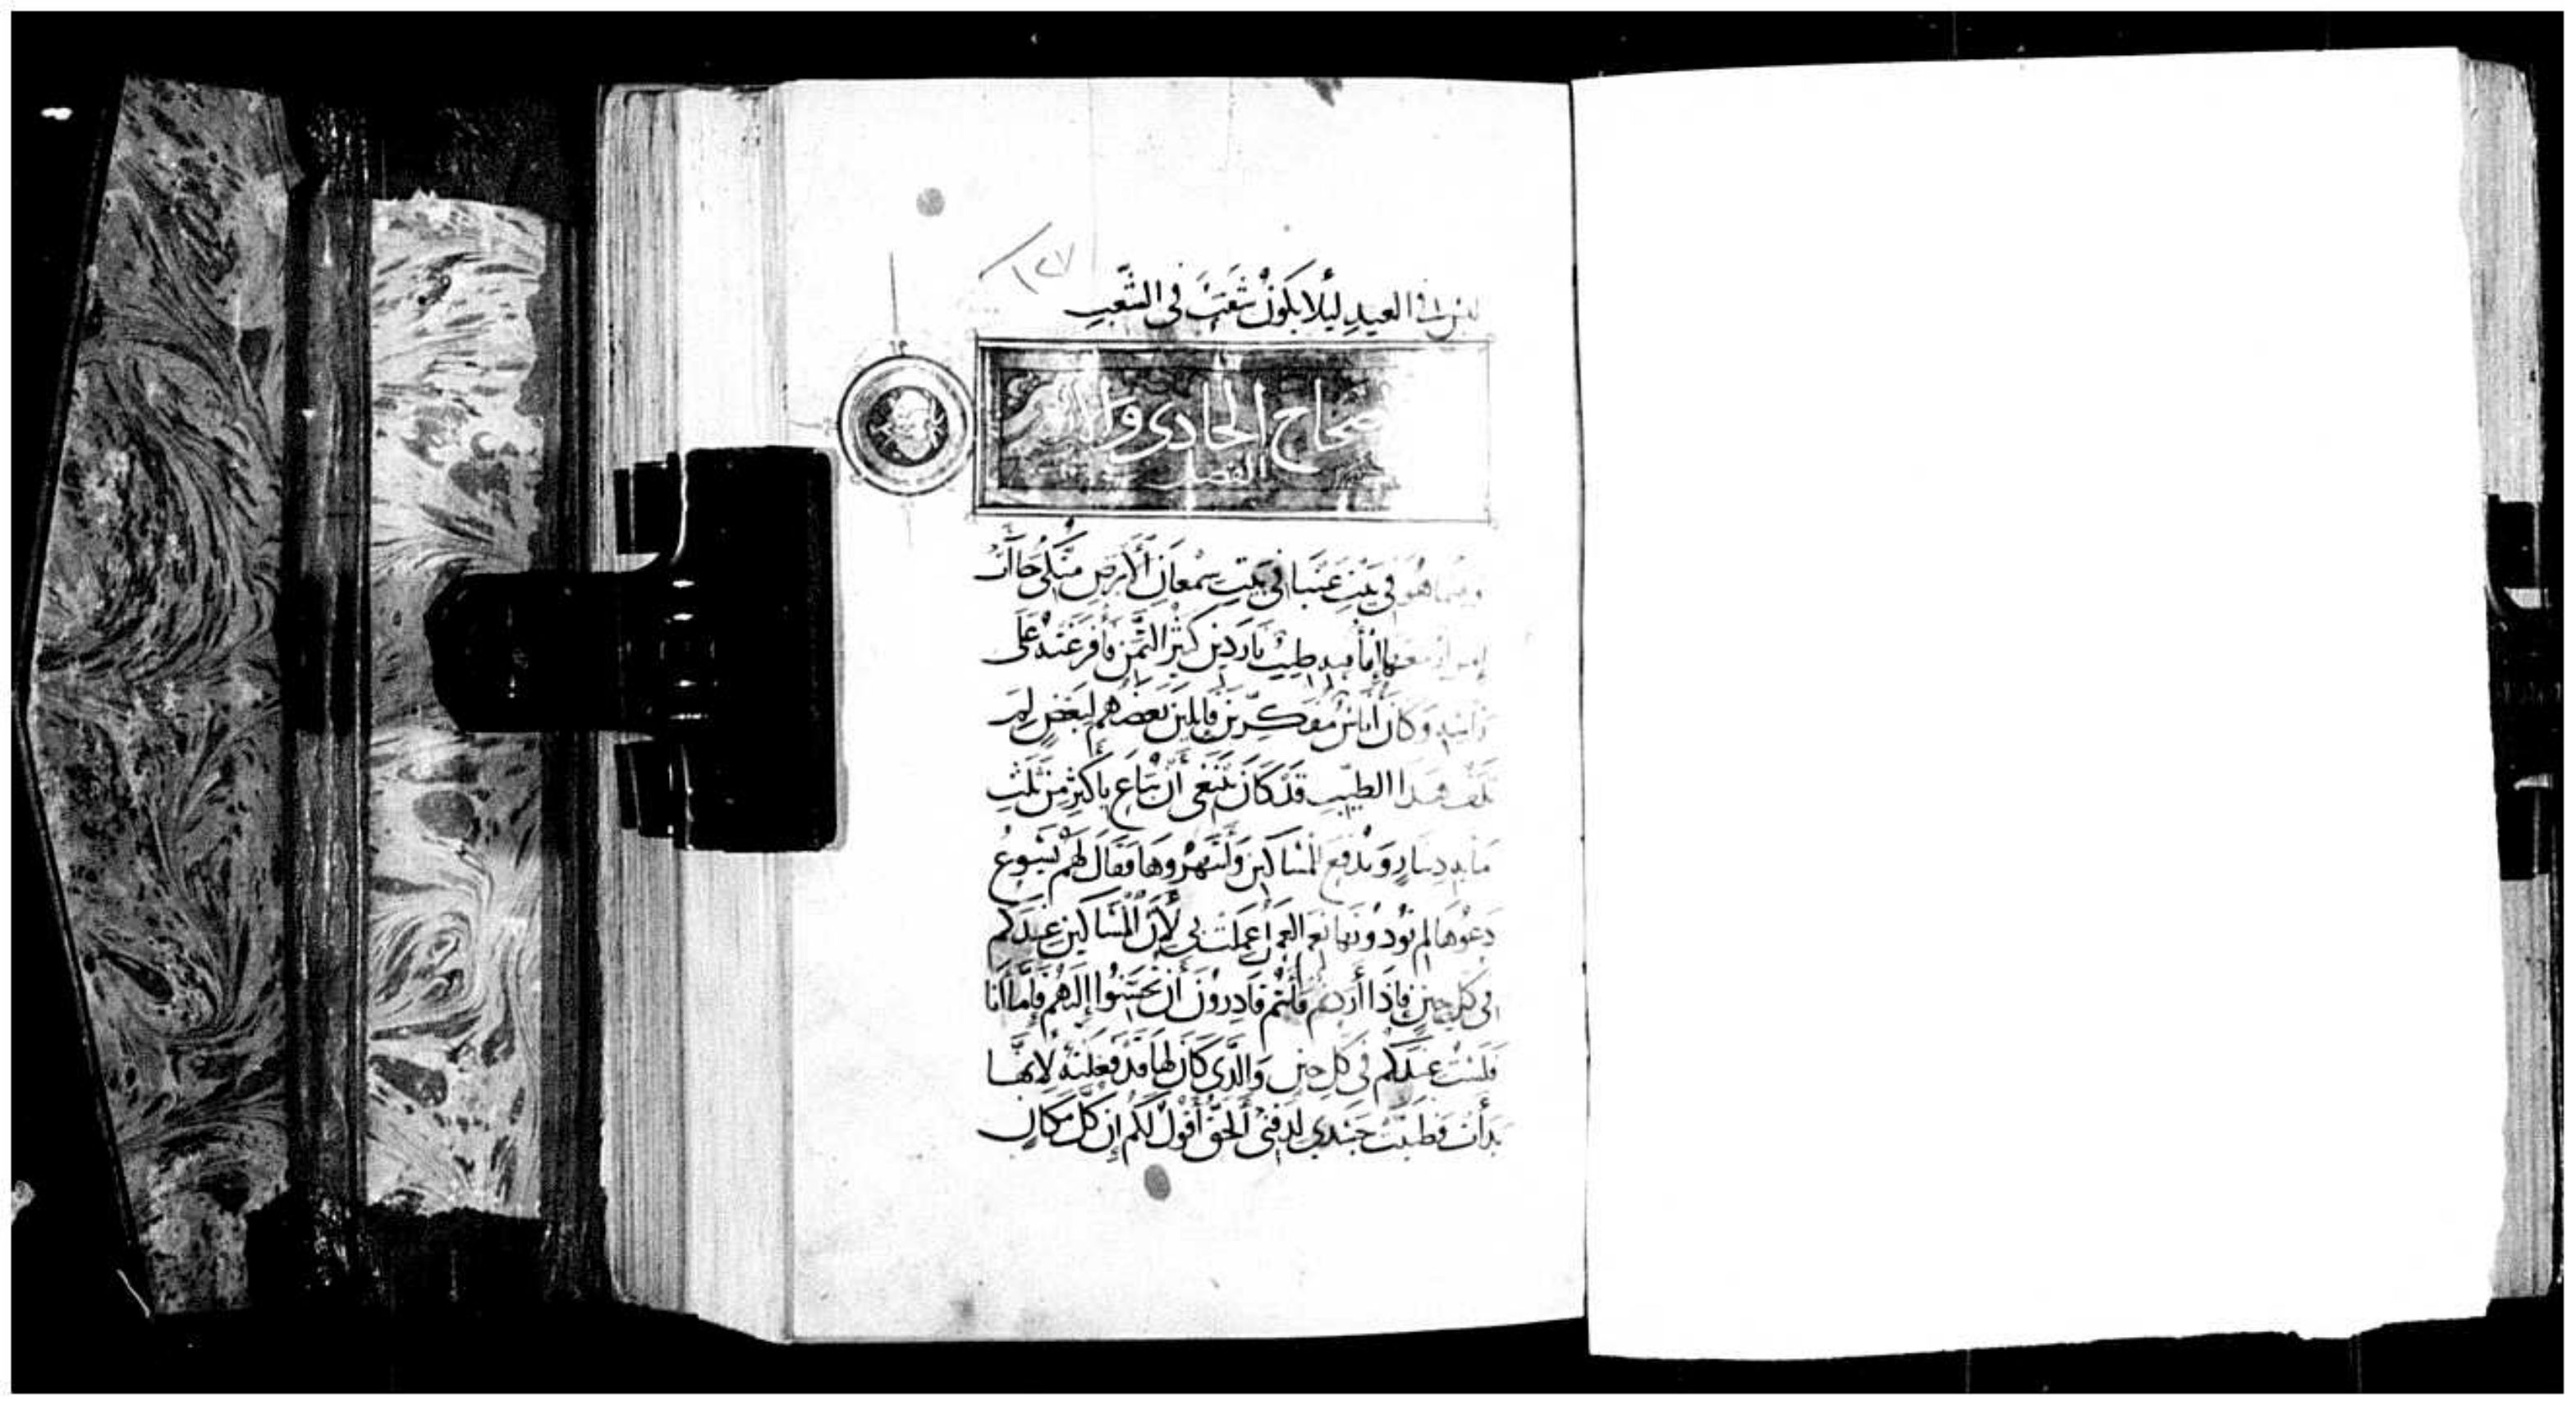 ١٢٧
ليس في العيد ليلا يكون شغب في الشعب
صحاح الحادي وال
الفصل
وبينما هو في بيت عنيا في بيت سمعان الأبرص متكي جاات
إمراة معها إناء فيه طيب ناردين كثير الثمن فافرغته على
راسه وكان أناس مفكرين قايلين بعضهم لبعض لم
تلف هذا الطيب قد كان ينبغي أن يباع باكثر من ثلث
مايه دينار ويدفع للمساكين وانتهروها فقال لهم يسوع
دعوها لم تودونها نعم العمل عملت بي لأن المساكين عندكم
في كل حين فإذا أردتم فأنتم قادرون أن تحسنوا إليهم فإما أنا
فلست عندكم في كل حين والذي كان لها قد فعلته لانها
بدأت فطيبت جسدي لدفني ألحق أقول لكم إن كل مكان